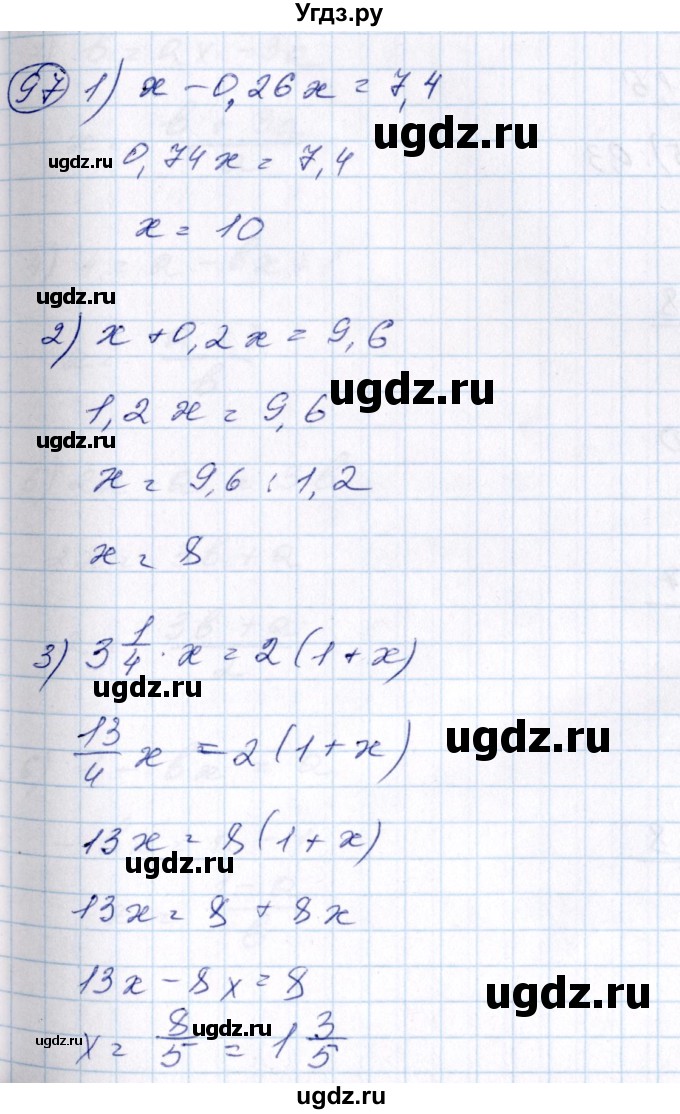 Угдз.ру
97 1) x - 0,26x = 7,4
ugdz.ru
ugdz.ru
0,74x = 7,4
x = 10
ugdz.ru
2) x + 0,2x = 9,6
ugdz.ru
1,2x = 9,6
ugdz.ru
x = 9,6 : 1,2
x = 8
3) 3 1/4 · x = 2(1 + x)
ugdz.ru
13/4 x = 2(1 + x)
ugdz.ru
13x = 8(1 + x)
ugdz.ru
13x = 8 + 8x
13x - 8x = 8
ugdz.ru
x = 8/5 = 1 3/5
ugdz.ru
ugdz.ru
Мой ГДЗ - ugdz.ru